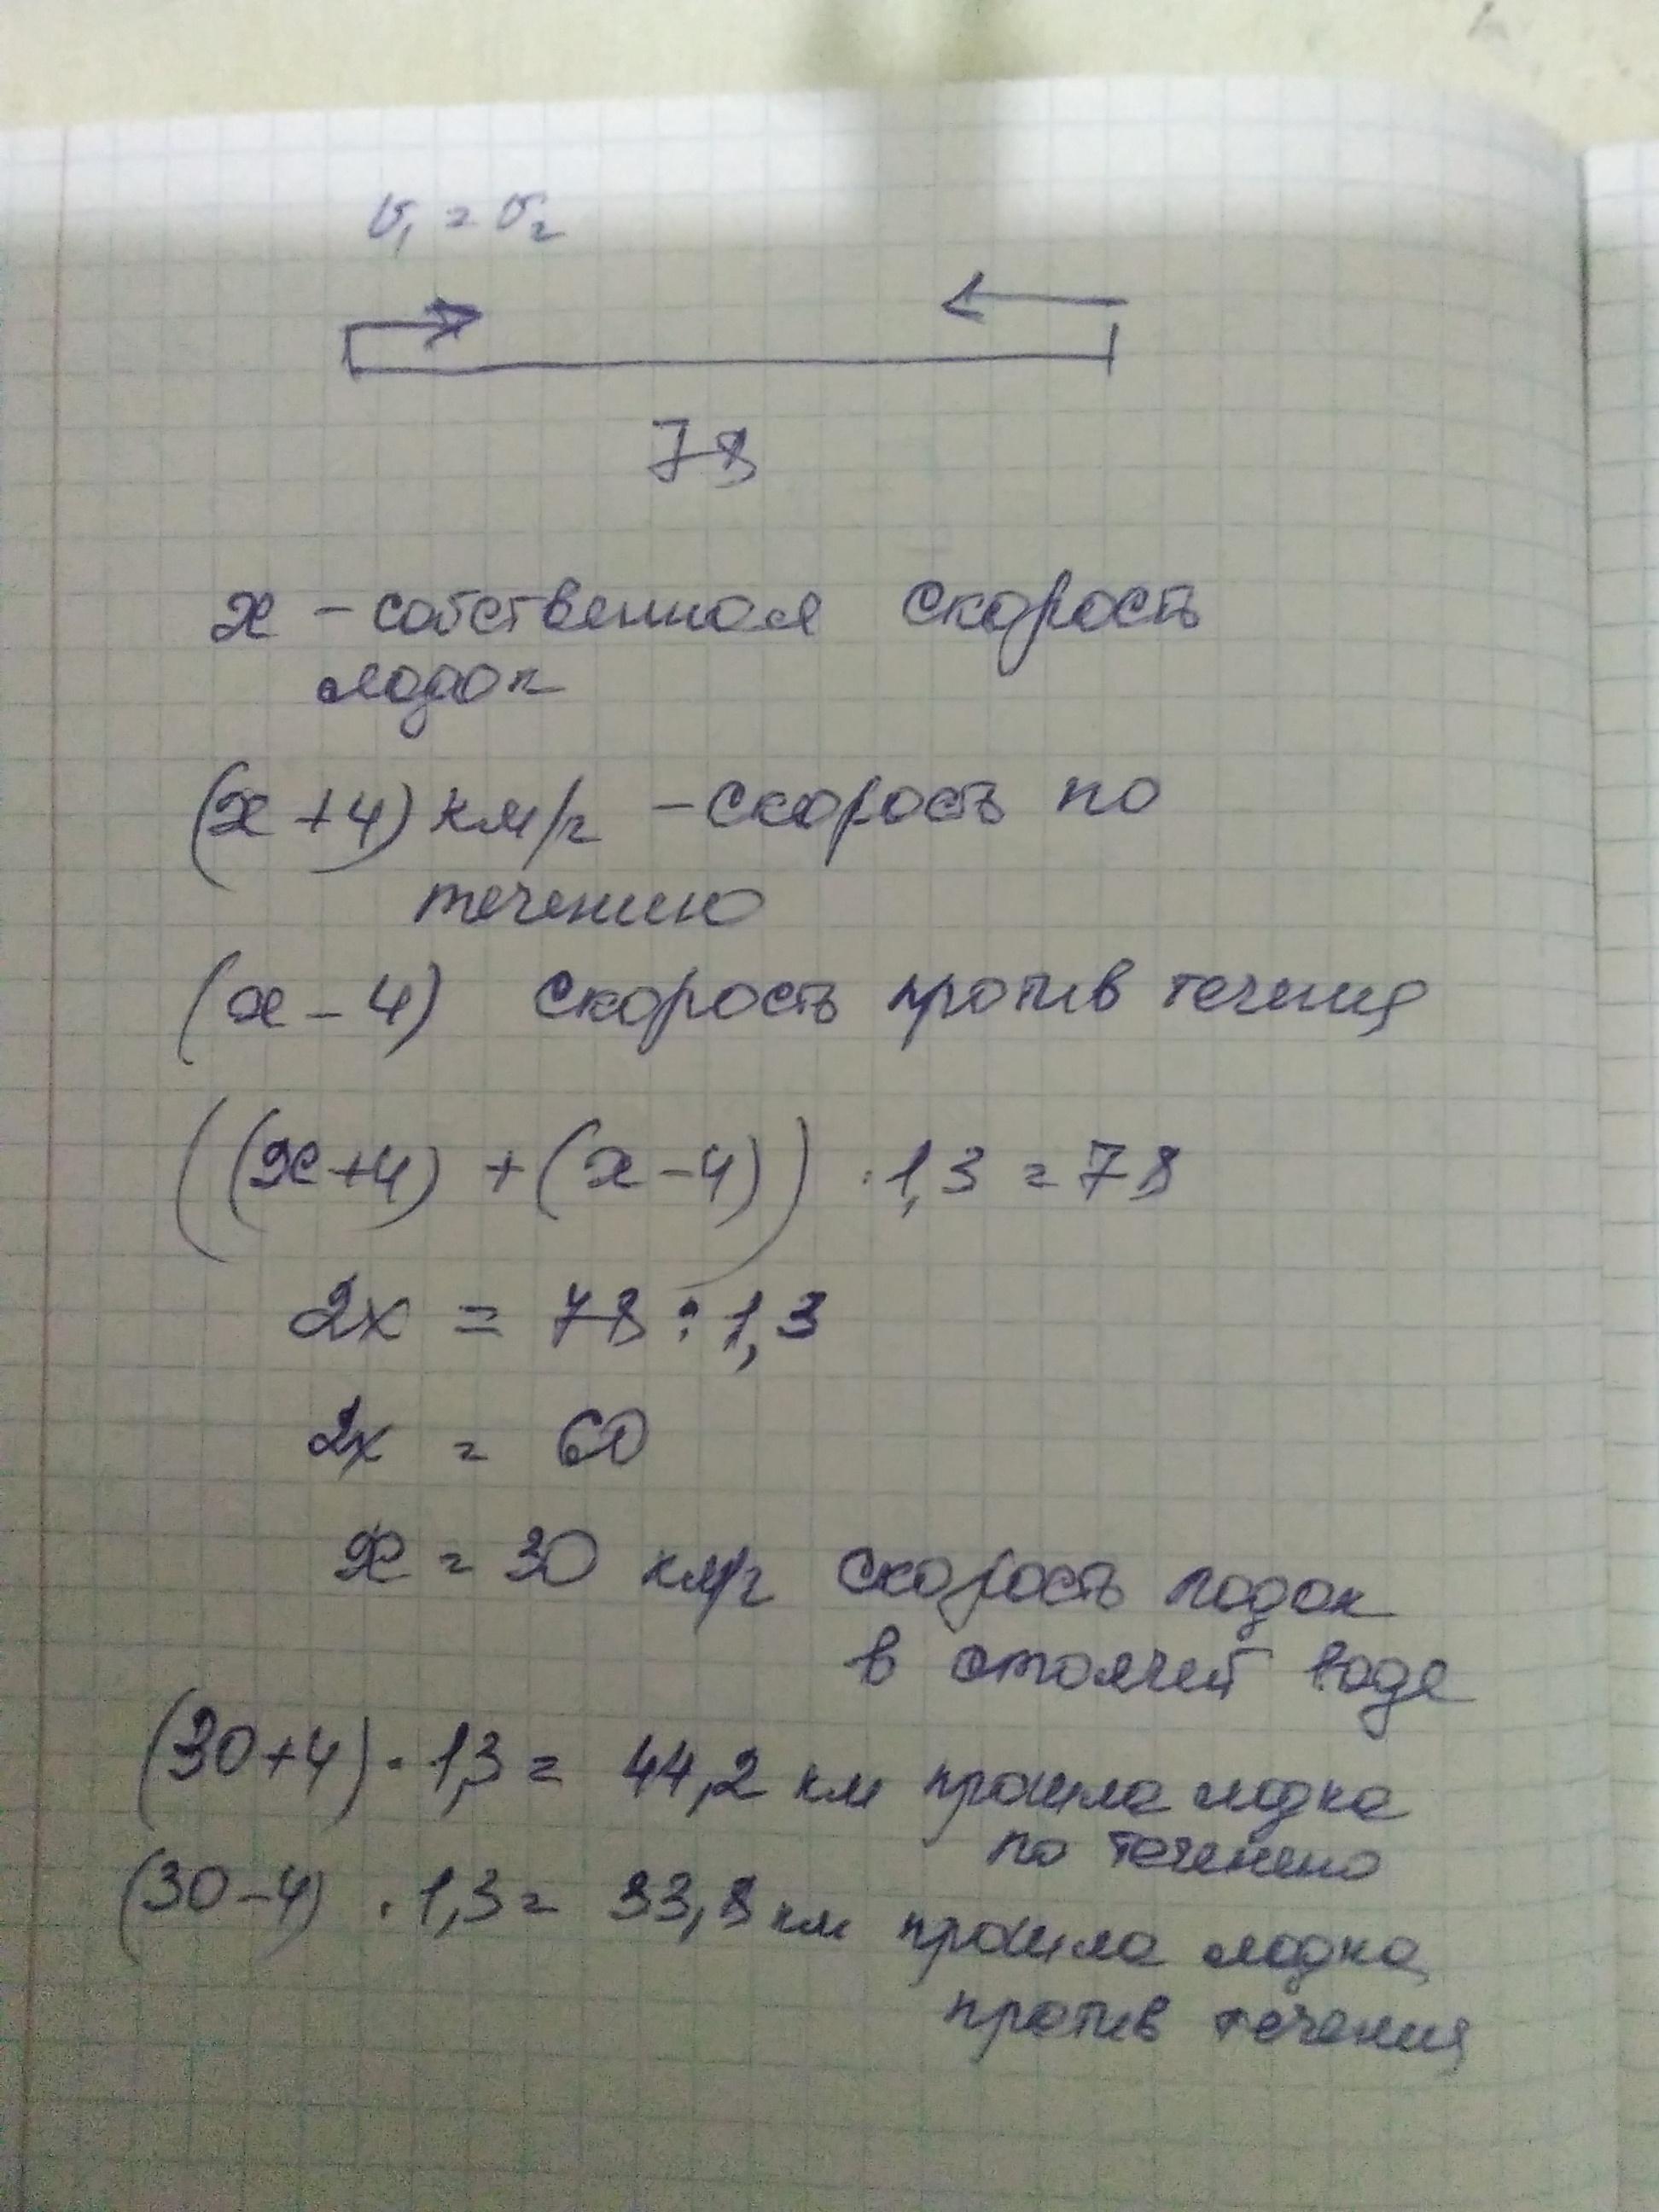 v₁ = v₂
78
x – собственная скорость
лодок
(x + 4) км/ч – скорость по
течению
(x – 4) скорость против течения
((x+4) + (x – 4)) · 1,3 = 78
2x = 78 : 1,3
2x = 60
x = 30 км/ч скорость лодок
в стоячей воде
(30+4) · 1,3 = 44,2 км прошла лодка
по течению
(30–4) · 1,3 = 33,8 км прошла лодка
против течения